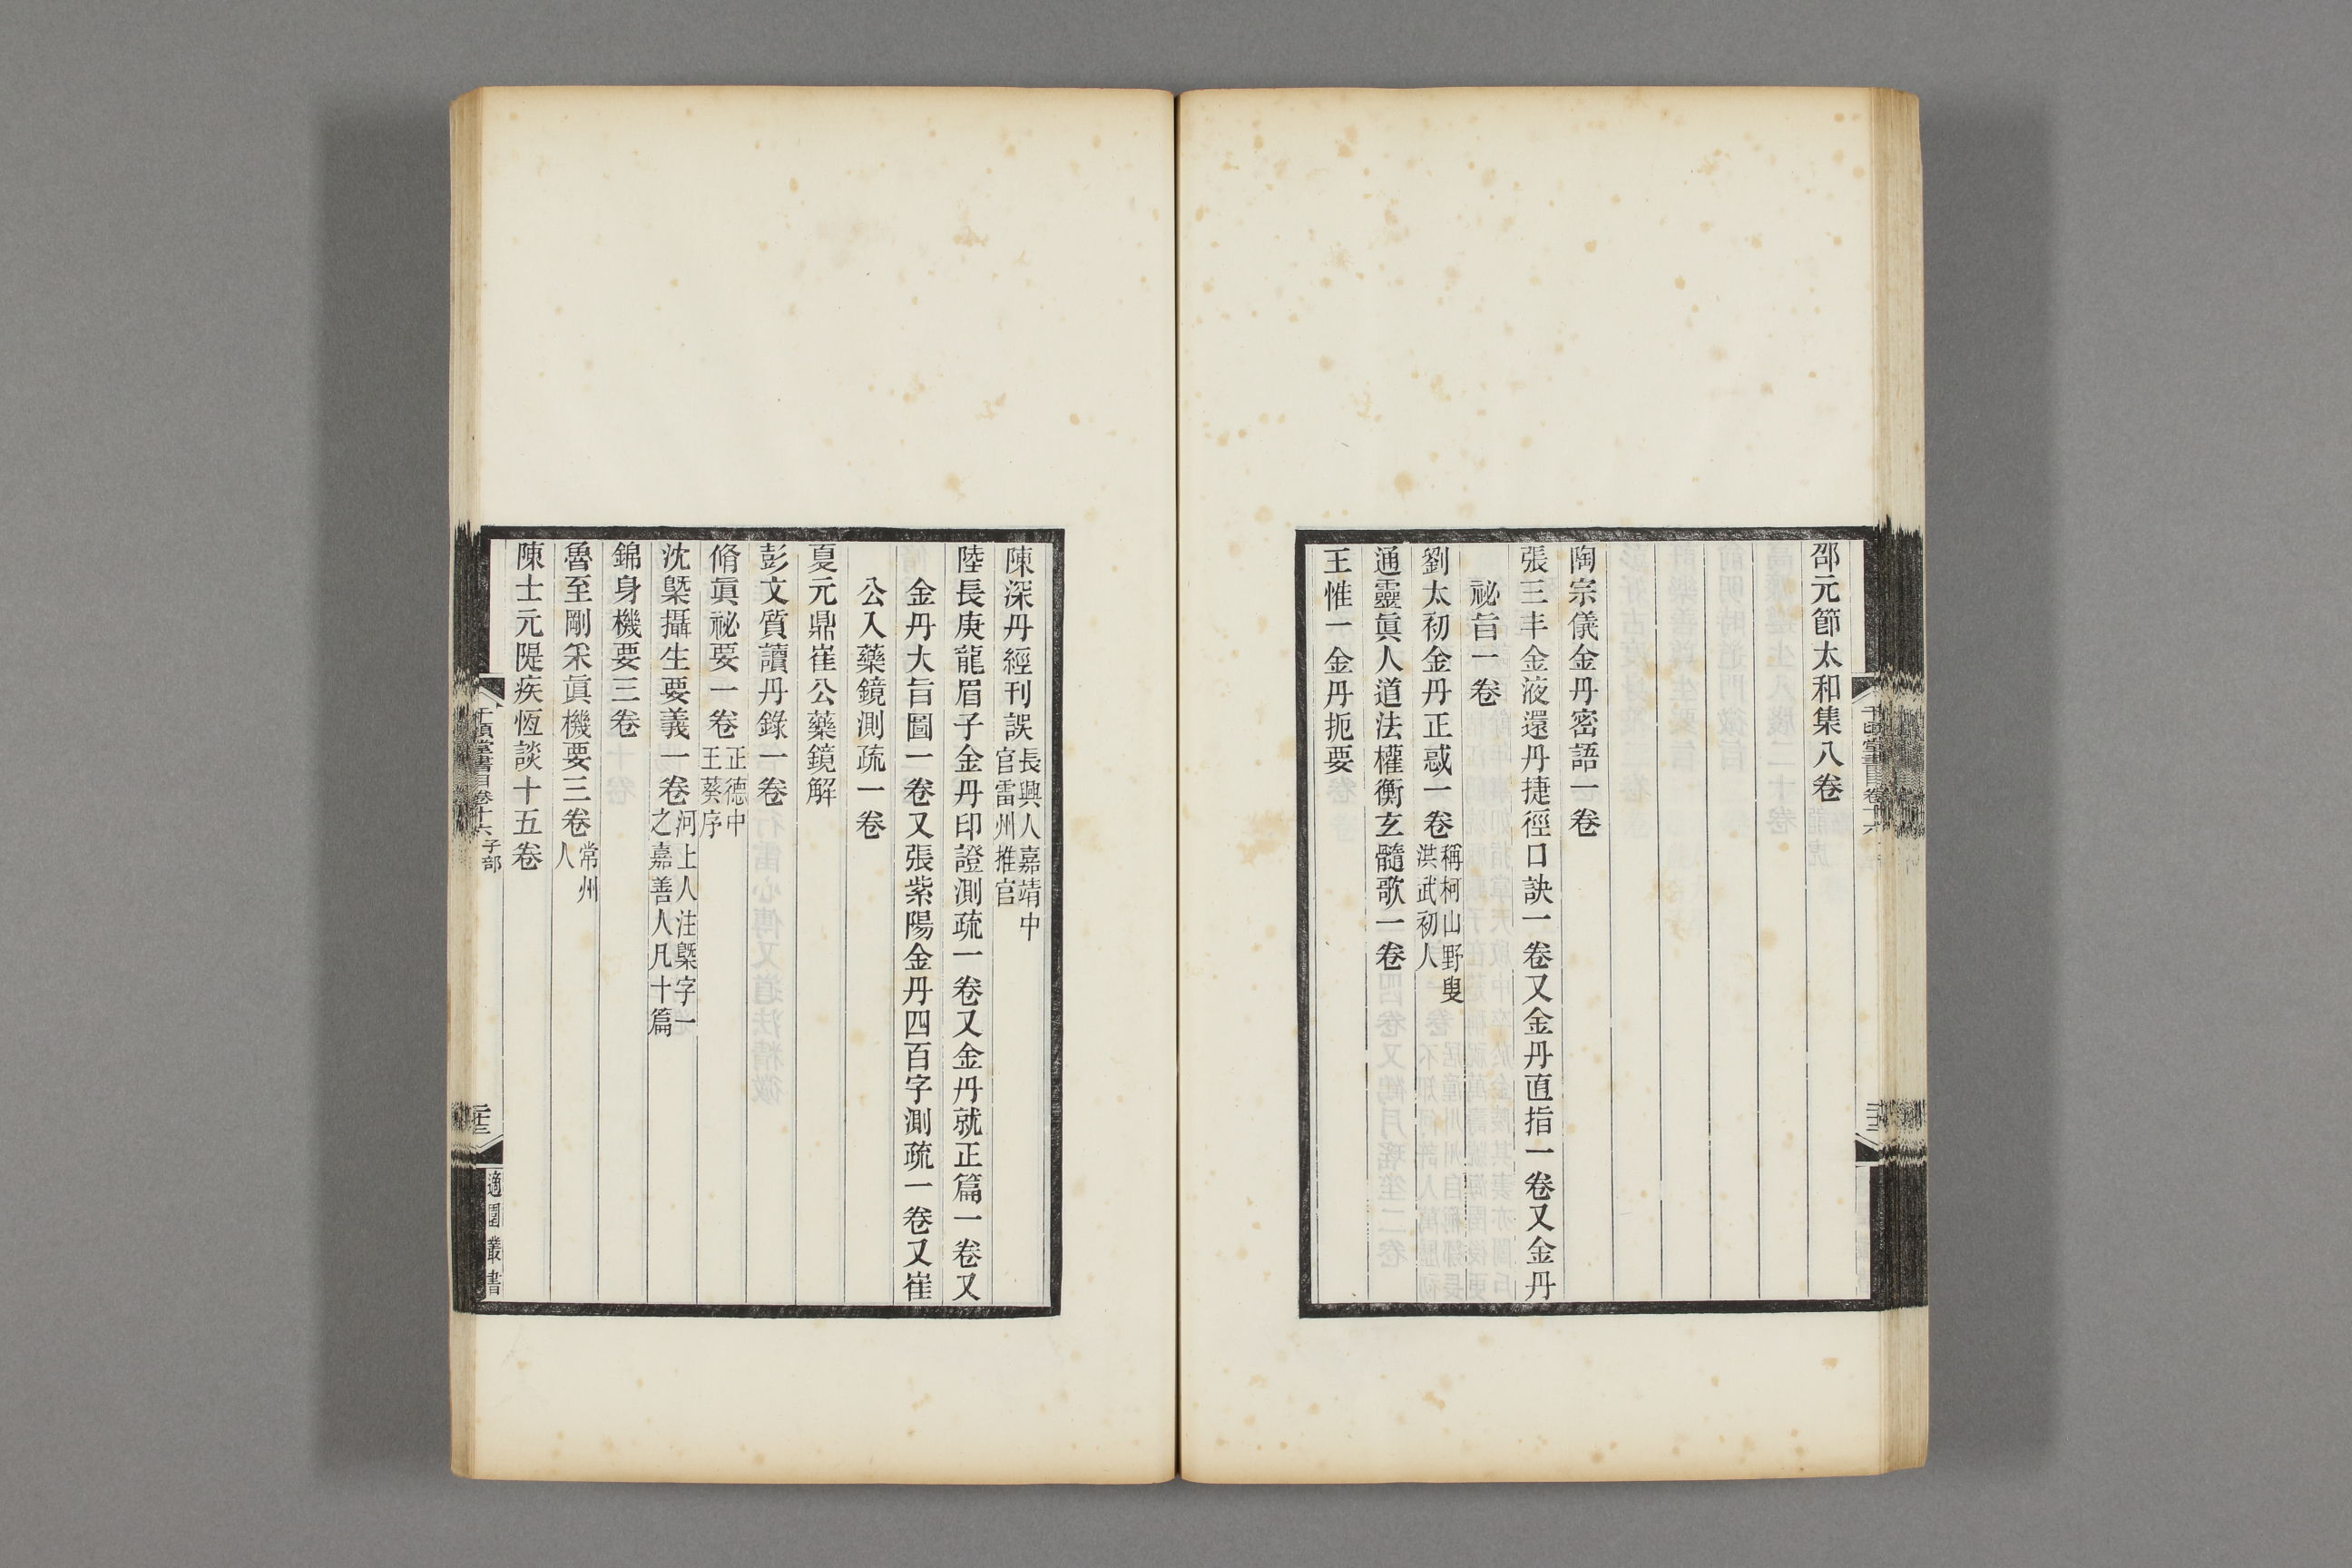 邵元節太和集八卷
陶宗儀金丹密語一卷
張三丰金液還丹捷徑口訣一卷又金丹直指一卷又金丹
祕旨一卷
劉太初金丹正惑一卷稱柯山野叟
洪武初人
通靈眞人道法權衡玄髓歌一卷
王惟一金丹扼要
陳深丹經刊誤長興人嘉靖中
官雷州推官
陸長庚龍眉子金丹印證測疏一卷又金丹就正篇一卷又
金丹大旨圖一卷又張紫陽金丹四百字測疏一卷又崔
公入藥鏡測疏一卷
夏元鼎崔公藥鏡解
彭文質讀丹錄一卷
脩眞祕要一卷正德中
王蔡序
沈槩攝生要義一卷河上人注槩字一
之嘉善人凡十篇
錦身機要三卷
魯至剛釆眞機要三卷常州
人
陳士元隄疾恆談十五卷
千頃堂書目卷十六子部
二十三
適園叢書